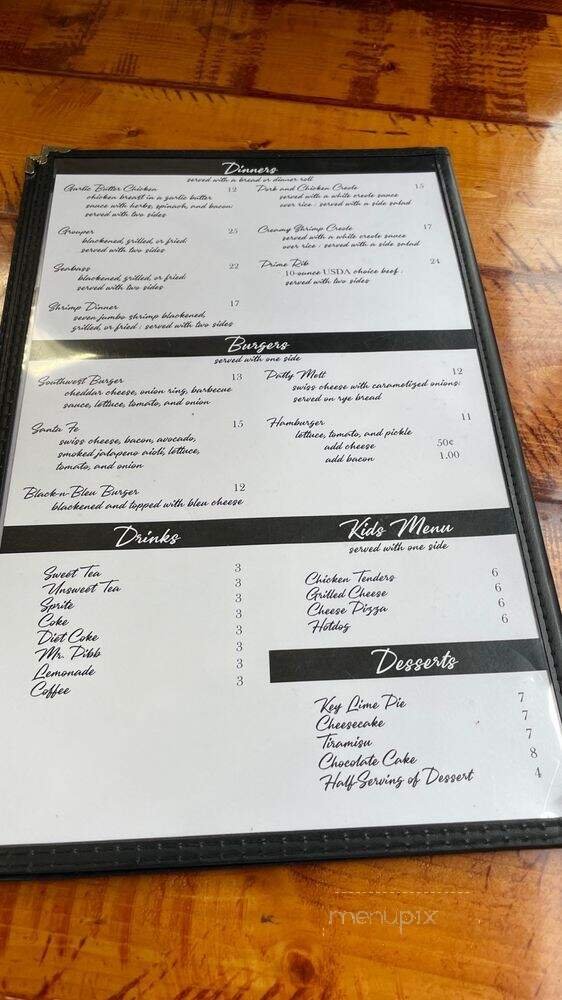 Dinners
served with a bread or dinner roll
Garlic Butter Chicken 12
chicken breast in a garlic butter
sauce with herbs, spinach, and bacon:
served with two sides
Grouper 25
blackened, grilled, or fried:
served with two sides
Seabass 22
blackened, grilled, or fried:
served with two sides
Shrimp Dinner 17
seven jumbo shrimp blackened,
grilled, or fried : served with two sides
Pork and Chicken Creole 15
served with a white creole sauce
over rice : served with a side salad
Creamy Shrimp Creole 17
served with a white creole sauce
over rice : served with a side salad
Prime Rib 24
10-ounce USDA choice beef :
served with two sides
Burgers
served with one side
Southwest Burger 13
cheddar cheese, onion ring, barbecue
sauce, lettuce, tomato, and onion
Santa Fe 15
swiss cheese, bacon, avocado,
smoked jalapeno aioli, lettuce,
tomato, and onion
Black-n-Bleu Burger 12
blackened and topped with bleu cheese
Patty Melt 12
swiss cheese with caramelized onions:
served on rye bread
Hamburger 11
lettuce, tomato, and pickle
add cheese 50¢
add bacon 1.00
Drinks
Sweet Tea 3
Unsweet Tea 3
Sprite 3
Coke 3
Diet Coke 3
Mr. Pibb 3
Lemonade 3
Coffee 3
Kids Menu
served with one side
Chicken Tenders 6
Grilled Cheese 6
Cheese Pizza 6
Hotdog 6
Desserts
Key Lime Pie 7
Cheesecake 7
Tiramisu 7
Chocolate Cake 8
Half-Serving of Dessert 4
menupix